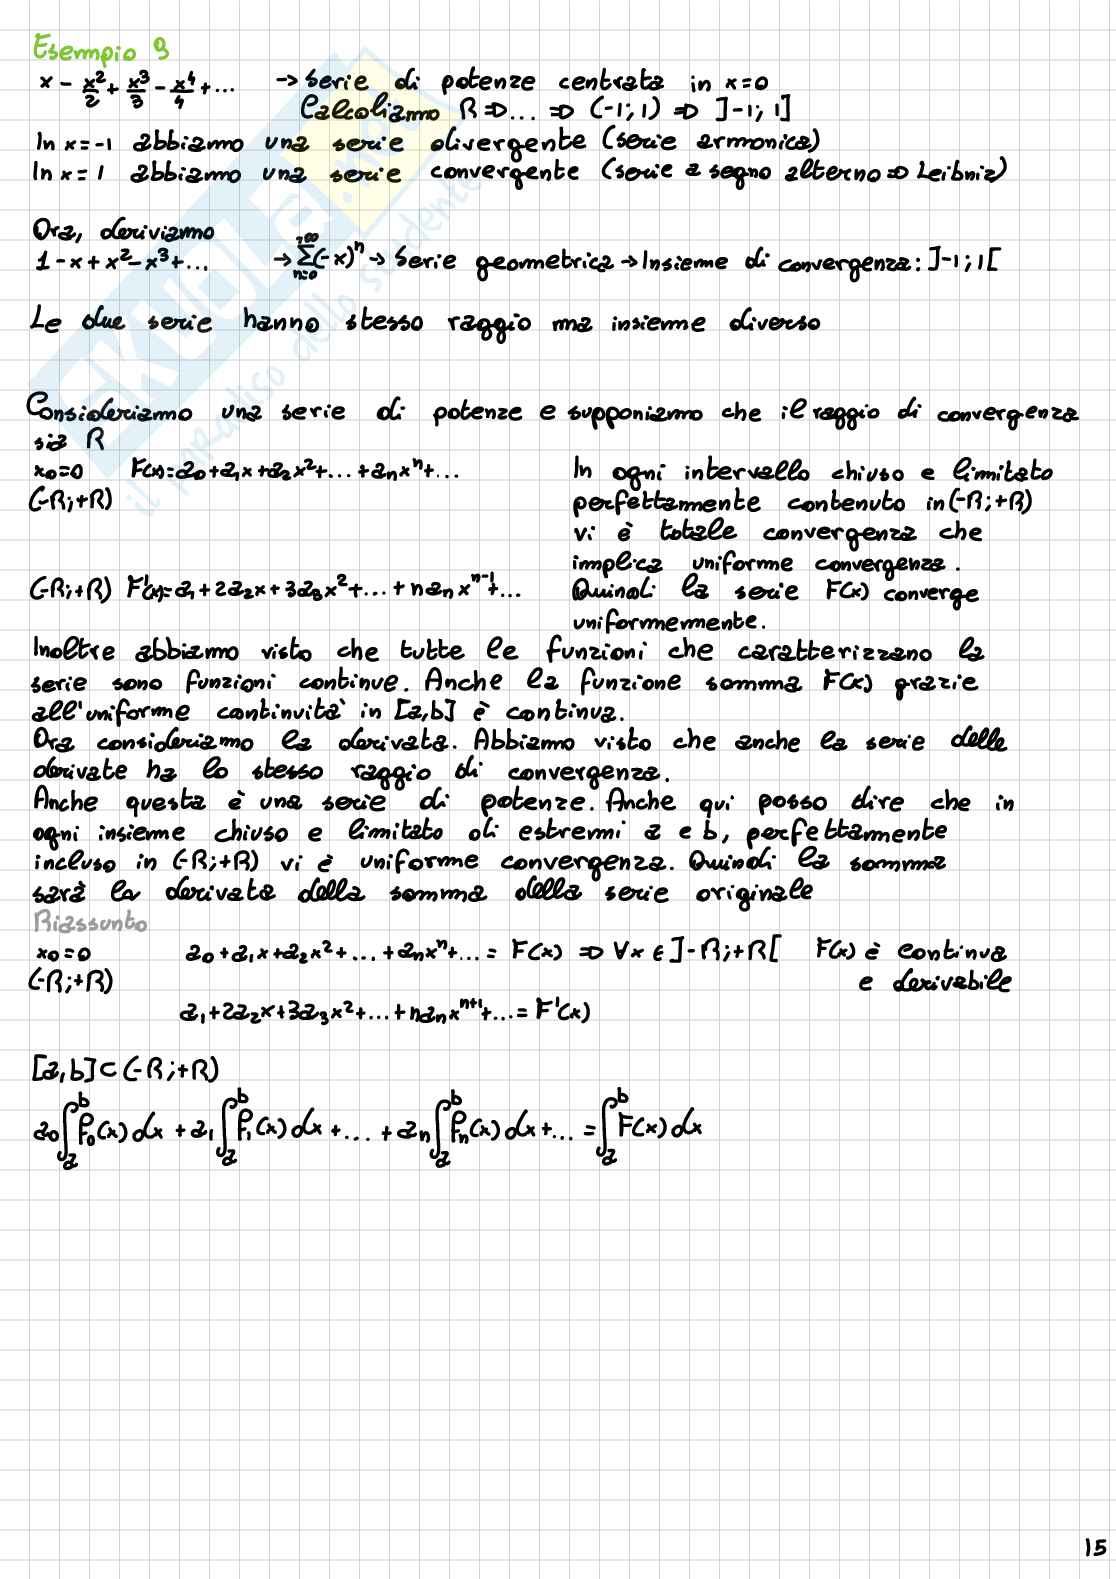 Esempio 9
x - x²/2 + x³/3 - x⁴/4 + ... → Serie di potenze centrata in x=0
Calcoliamo R ⇒ ... ⇒ (-1; 1) ⇒ ]-1; 1]
In x=-1 abbiamo una serie divergente (serie armonica)
In x=1 abbiamo una serie convergente (serie a segno alterno ⇒ Leibniz)
Ora, deriviamo
1-x+x²-x³+... → Σ(-x)ⁿ n=0 +∞ → Serie geometrica → Insieme di convergenza: ]-1;1[
Le due serie hanno stesso raggio ma insieme diverso
Consideriamo una serie di potenze e supponiamo che il raggio di convergenza
sia R
x₀=0 F(x)=a₀+a₁x+a₂x²+...+aₙxⁿ+...
(-R;+R)
In ogni intervallo chiuso e limitato
perfettamente contenuto in (-R;+R)
vi è totale convergenza che
implica uniforme convergenza.
Quindi la serie F(x) converge
uniformemente.
(-R;+R) F'(x)=a₁+2a₂x+3a₃x²+...+naₙxⁿ⁻¹+...
Inoltre abbiamo visto che tutte le funzioni che caratterizzano la
serie sono funzioni continue. Anche la funzione somma F(x) grazie
all'uniforme continuità in [a,b] è continua.
Ora consideriamo la derivata. Abbiamo visto che anche la serie delle
derivate ha lo stesso raggio di convergenza.
Anche questa è una serie di potenze. Anche qui posso dire che in
ogni insieme chiuso e limitato di estremi a e b, perfettamente
incluso in (-R;+R) vi è uniforme convergenza. Quindi la somma
sarà la derivata della somma della serie originale
Riassunto
x₀=0 a₀+a₁x+a₂x²+...+aₙxⁿ+...= F(x) ⇒ ∀x ∈ ]-R;+R[ F(x) è continua
(-R;+R) e derivabile
a₁+2a₂x+3a₃x²+...+naₙxⁿ⁺¹+...= F'(x)
[a,b]⊂(-R;+R)
a₀∫ₐᵇ f₀(x)dx + a₁∫ₐᵇ f₁(x)dx + ... + aₙ∫ₐᵇ fₙ(x)dx + ... = ∫ₐᵇ F(x)dx
15
skuola.net
il paradiso dello studente